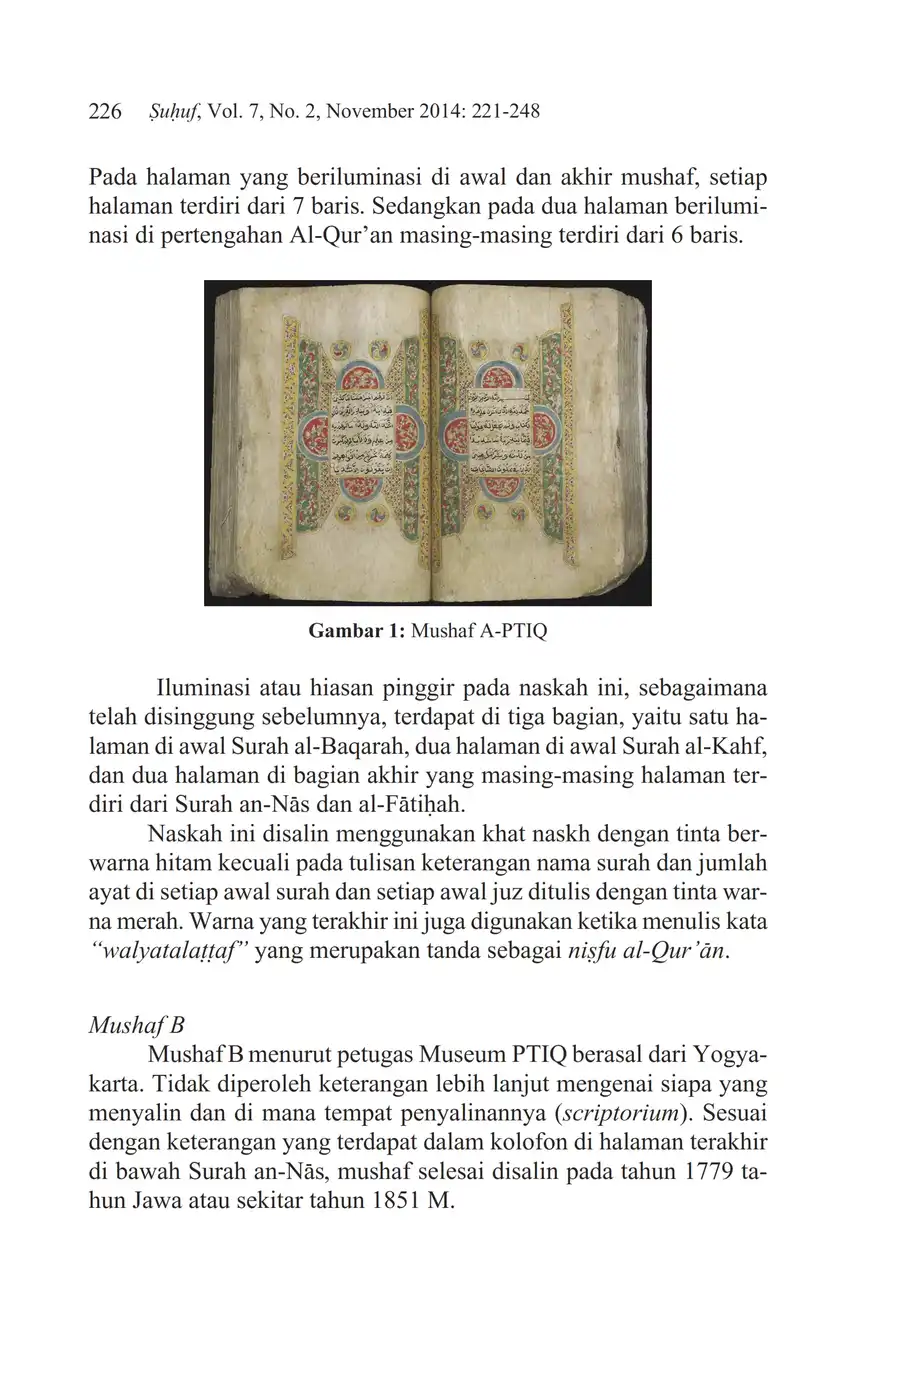 226 Ṣuḥuf, Vol. 7, No. 2, November 2014: 221-248
Pada halaman yang beriluminasi di awal dan akhir mushaf, setiap
halaman terdiri dari 7 baris. Sedangkan pada dua halaman berilumi-
nasi di pertengahan Al-Qur’an masing-masing terdiri dari 6 baris.
Gambar 1: Mushaf A-PTIQ
Iluminasi atau hiasan pinggir pada naskah ini, sebagaimana
telah disinggung sebelumnya, terdapat di tiga bagian, yaitu satu ha-
laman di awal Surah al-Baqarah, dua halaman di awal Surah al-Kahf,
dan dua halaman di bagian akhir yang masing-masing halaman ter-
diri dari Surah an-Nās dan al-Fātiḥah.
Naskah ini disalin menggunakan khat naskh dengan tinta ber-
warna hitam kecuali pada tulisan keterangan nama surah dan jumlah
ayat di setiap awal surah dan setiap awal juz ditulis dengan tinta war-
na merah. Warna yang terakhir ini juga digunakan ketika menulis kata
“walyatalaṭṭaf” yang merupakan tanda sebagai niṣfu al-Qur’ān.
Mushaf B
Mushaf B menurut petugas Museum PTIQ berasal dari Yogya-
karta. Tidak diperoleh keterangan lebih lanjut mengenai siapa yang
menyalin dan di mana tempat penyalinannya (scriptorium). Sesuai
dengan keterangan yang terdapat dalam kolofon di halaman terakhir
di bawah Surah an-Nās, mushaf selesai disalin pada tahun 1779 ta-
hun Jawa atau sekitar tahun 1851 M.